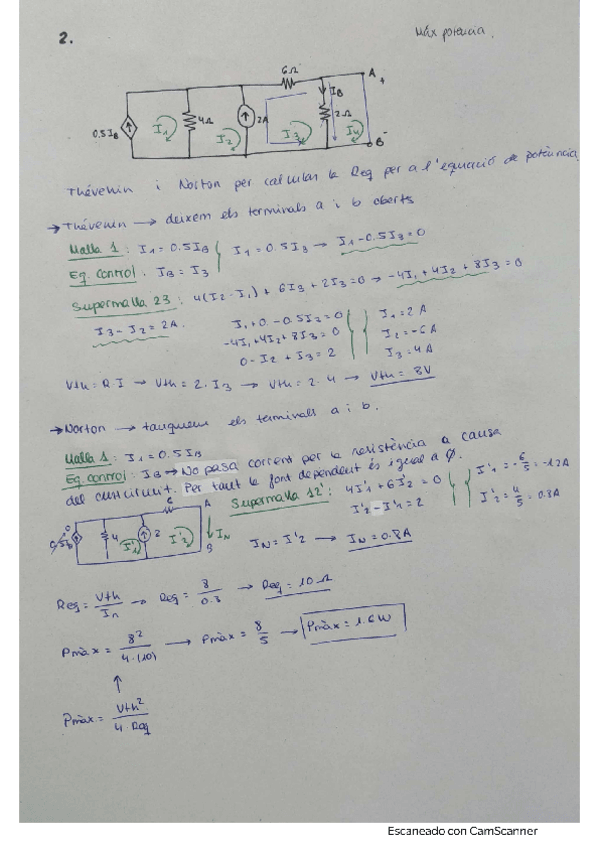 2.
Màx potència.
6Ω
A +
IB
0.5 IB
I1
4Ω
I2
2A
I3
2Ω
I4
B-
Thévenin i Norton per calcular la Req per a l'equació de potència
→ Thévenin → deixem els terminals a i b oberts
Malla 1: I1 = 0.5 IB
I1 = 0.5 I3 → I1 - 0.5 I3 = 0
Eq. control: IB = I3
Supermalla 23: 4(I2-I1) + 6I3 + 2I3 = 0 → -4I1 + 4I2 + 8I3 = 0
I3 - I2 = 2A.
I1 + 0 - 0.5I3 = 0
-4I1 + 4I2 + 8I3 = 0
0 - I2 + I3 = 2
I1 = 2A
I2 = -6A
I3 = 4A
Vth = R·I → Vth = 2·I3 → Vth = 2·4 → Vth = 8V
→ Norton → tanquem els terminals a i b.
Malla 1: I1 = 0.5 IB
Eq. control: IB → No pasa corrent per la resistència a causa
del curtcircuit. Per tant la font dependent és igual a 0.
Supermalla 12': 4I'1 + 6I'2 = 0
I'2 - I'1 = 2
I'1 = -6/5 = -1.2A
I'2 = 4/5 = 0.8A
A
0.5IB
4
I'1
2
I'2
IN
B
IN = I'2 → IN = 0.8A
Req = Vth/In → Req = 8/0.8 → Req = 10Ω
Pmàx = 8²/4·(10) → Pmàx = 8/5 → Pmàx = 1.6W
↑
Pmàx = Vth²/4·Req
Escaneado con CamScanner